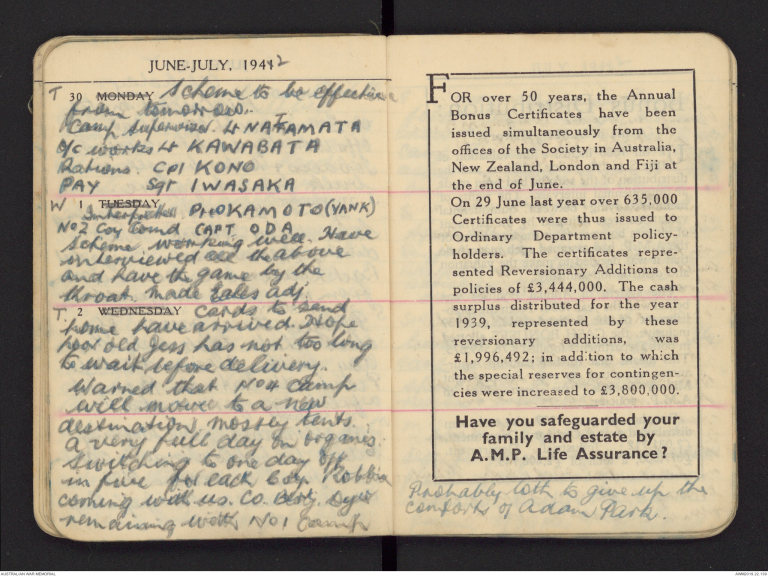 JUNE-JULY, 19412
T 30 MONDAY Scheme to be effective
from tomorrow.
Camp Supervisor. Lt NATAMATA
O/c works Lt KAWABATA
Rations. Cpl KONO
PAY Sgt IWASAKA
W 1 TUESDAY
Interpreter PteOKAMOTO (YANK)
No2 Coy Comd CAPT ODA
Scheme working well. Have
interviewed all the above
and have the game by the
throat. Made Eales adj.
T. 2 WEDNESDAY Cards to send
home have arrived. Hope
poor old Jess has not too long
to wait before delivery.
Warned that No4 Camp
will move to a new
destination, mostly tents.
A very full day on organis.
Switching to one day off
in five for each Coy. Robbie
coming with us. Co.
remaining with No 1 Camp
FOR over 50 years, the Annual
Bonus Certificates have been
issued simultaneously from the
offices of the Society in Australia,
New Zealand, London and Fiji at
the end of June.
On 29 June last year over 635,000
Certificates were thus issued to
Ordinary Department policy-
holders. The certificates repre-
sented Reversionary Additions to
policies of £3,444,000. The cash
surplus distributed for the year
1939, represented by these
reversionary additions, was
£1,996,492; in addition to which
the special reserves for contingen-
cies were increased to £3,800,000.
Have you safeguarded your
family and estate by
A.M.P. Life Assurance?
Probably loth to give up the
comforts of Adam Park.
AUSTRALIAN WAR MEMORIAL